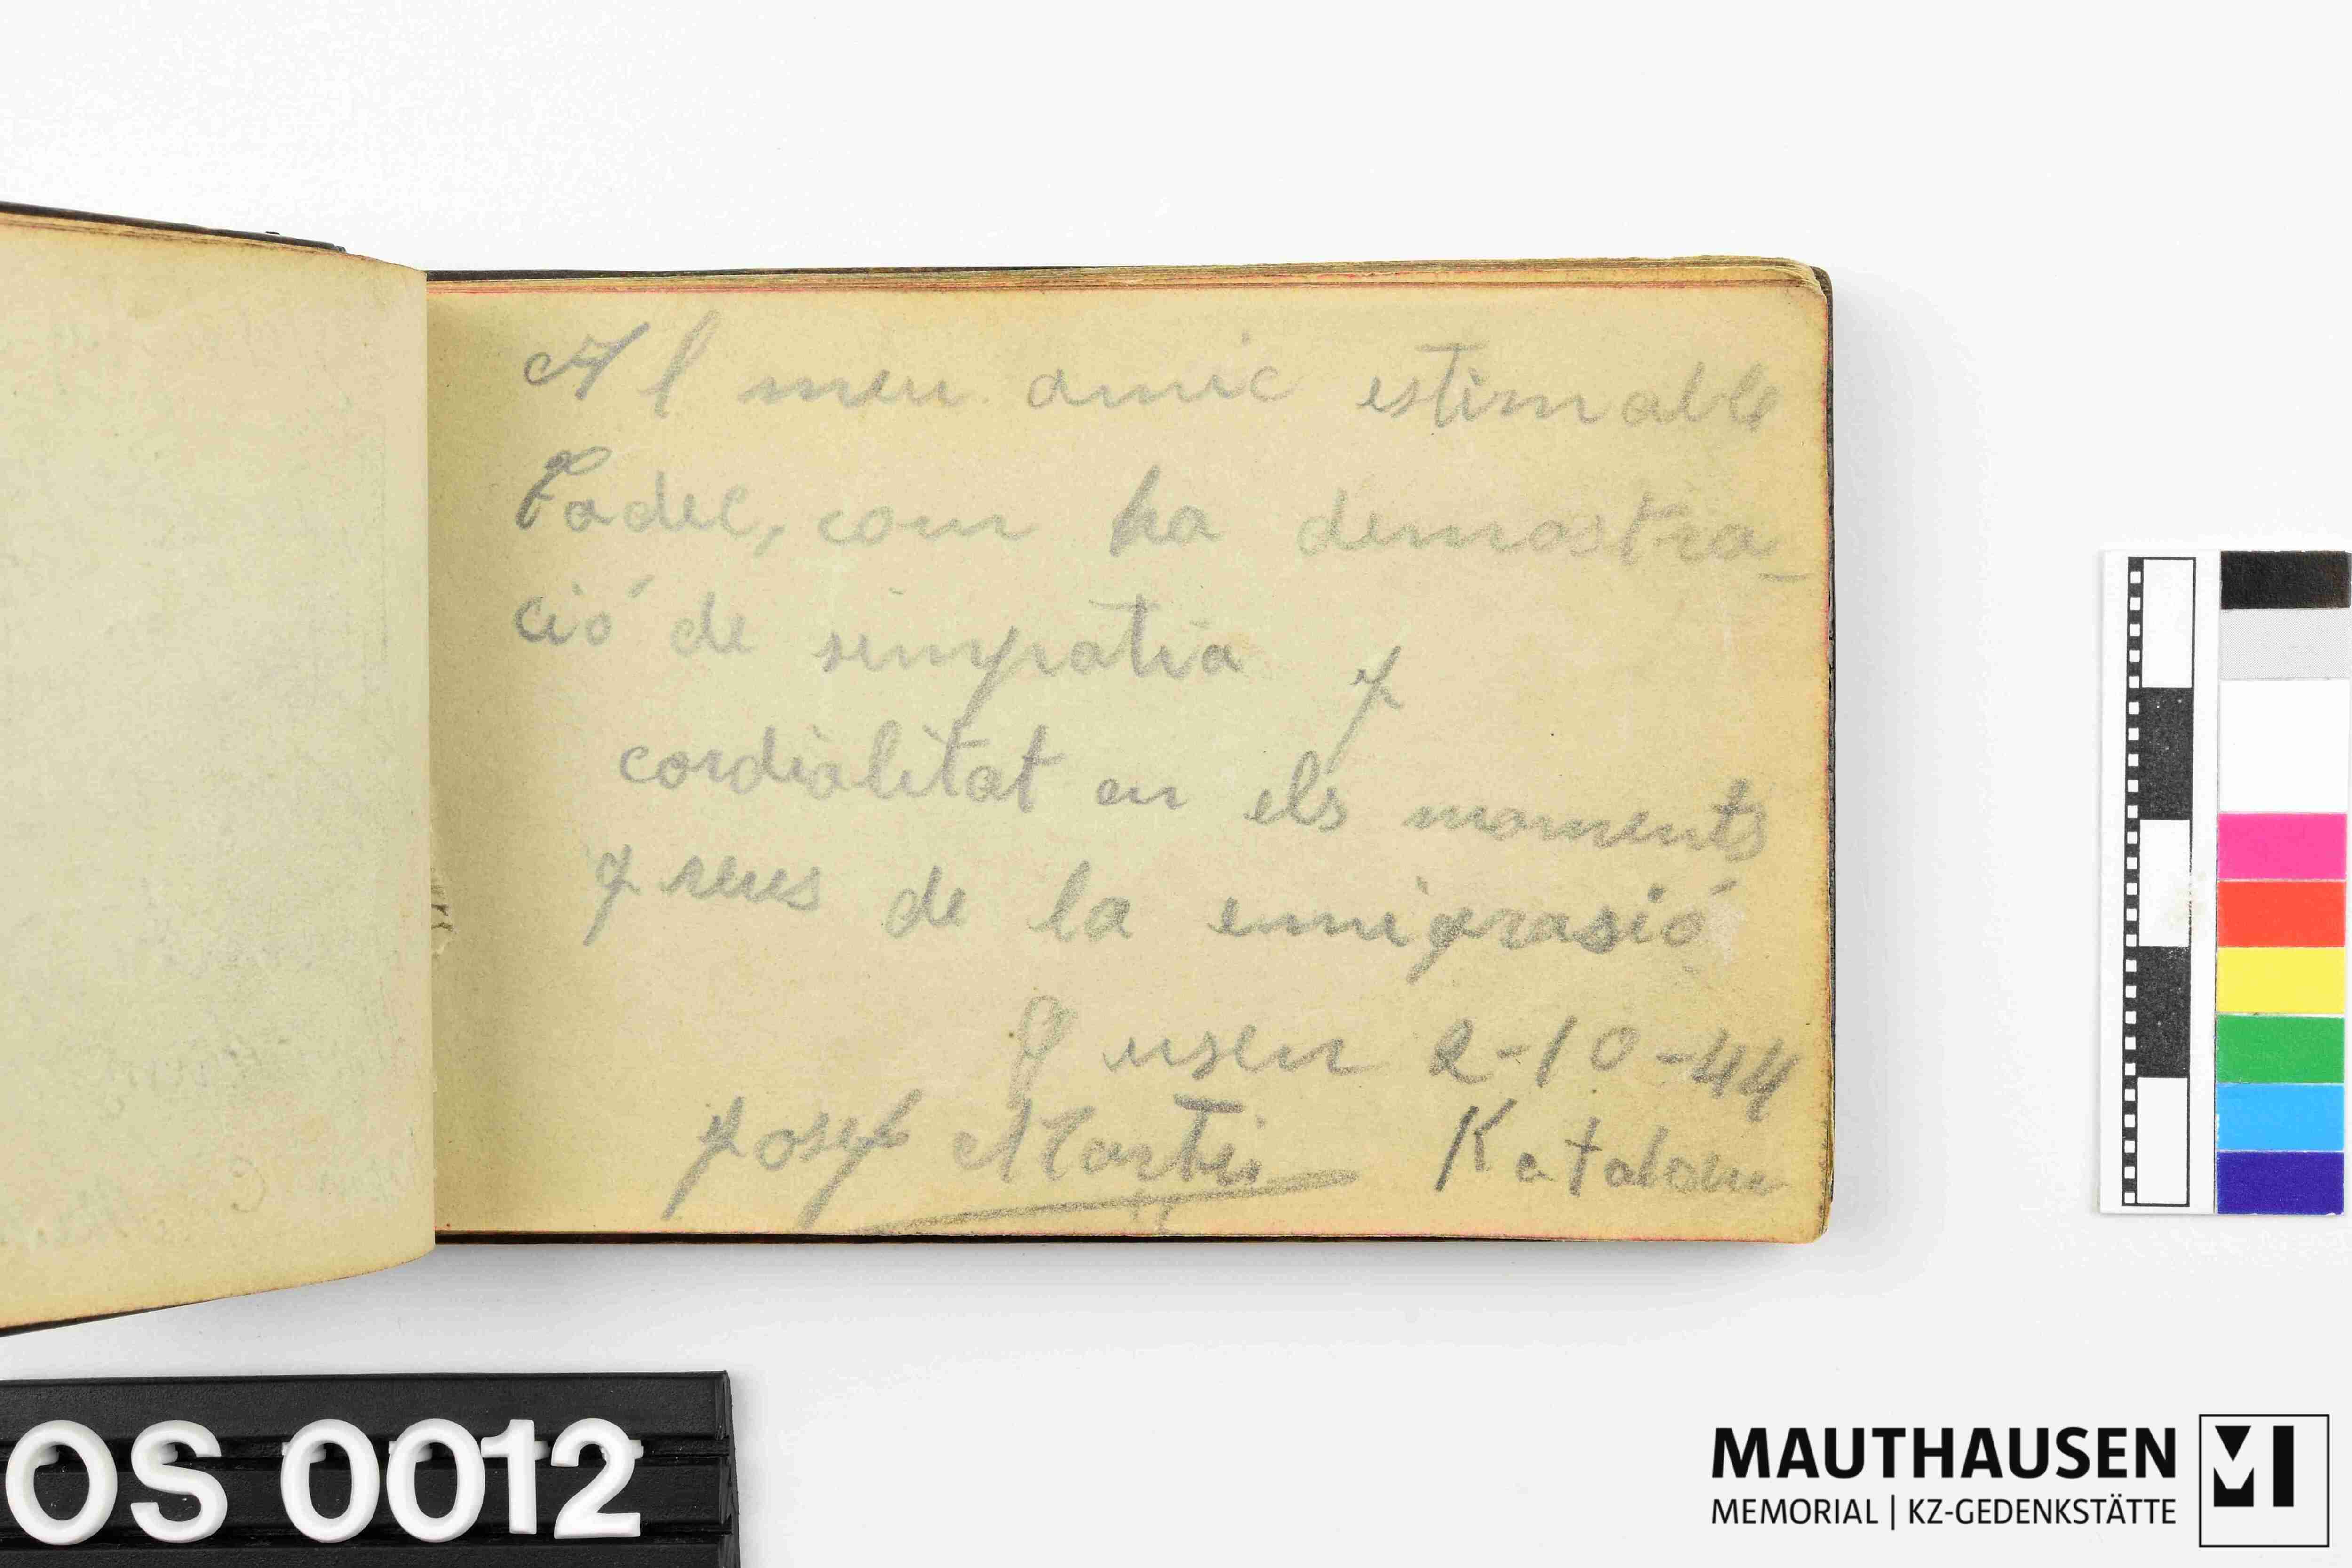 Al meu amic estimable
Tadec, com ha demostra-
ció de simpatia y
cordialitat en els moments
greus de la emigrasió
Gusen 2-10-44
Josep Martin Katalou
OS 0012
MAUTHAUSEN
MEMORIAL | KZ-GEDENKSTÄTTE